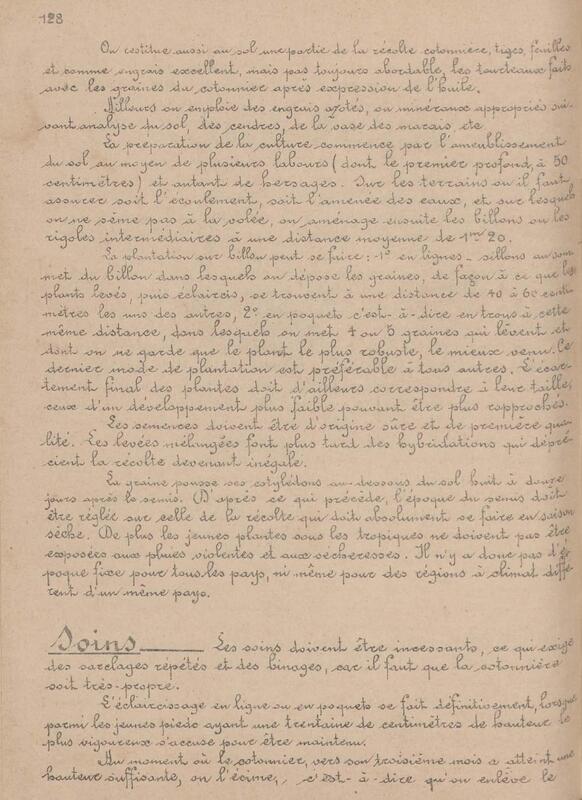 128
On restitue aussi au sol une partie de la récolte cotonnière, tiges, feuilles
et comme engrais excellent, mais pas toujours abordable, les tourteaux faits
avec les graines du cotonnier après expression de l'huile.
Ailleurs on emploie des engrais azotés, ou minéraux appropriés sui-
vant analyse du sol, des cendres, de la vase des marais, etc
La préparation de la culture commence par l'ameublissement
du sol au moyen de plusieurs labours (dont le premier profond, à 50
centimètres) et autant de hersages. Sur les terrains où il faut
assurer soit l'écoulement, soit l'amenée des eaux, et sur lesquels
on ne sème pas à la volée, on aménage ensuite les billons ou les
rigoles intermédiaires à une distance moyenne de 1m 20.
La plantation sur billon peut se faire : 1° en lignes - sillons au som-
met du billon dans lesquels on dépose les graines, de façon à ce que les
plants levés, puis éclaircis, se trouvent à une distance de 40 à 60 centi-
mètres les uns des autres, 2° en poquets c'est-à-dire en trous à cette
même distance, dans lesquels on met 4 ou 5 graines qui lèvent et
dont on ne garde que le plant le plus robuste, le mieux venu. Ce
dernier mode de plantation est préférable à tous autres. L'écar-
tement final des plantes doit d'ailleurs correspondre à leur taille,
ceux d'un développement plus faible pouvant être plus rapprochés.
Les semences doivent être d'origine sûre et de première qua-
lité. Les levées mélangées font plus tard des hybridations qui dépré-
cient la récolte devenant inégale.
La graine pousse ses cotylédons au-dessous du sol huit à douze
jours après le semis. D'après ce qui précède, l'époque du semis doit
être réglée sur celle de la récolte qui doit absolument se faire en saison
sèche. De plus les jeunes plantes sous les tropiques ne doivent pas être
exposées aux pluies violentes et aux sécheresses. Il n'y a donc pas d'é-
poque fixe pour tous les pays, ni même pour des régions à climat diffé-
rent d'un même pays.
Soins Les soins doivent être incessants, ce qui exige
des sarclages répétés et des binages, car il faut que la cotonnière
soit très-propre.
L'éclaircissage en ligne ou en poquets se fait définitivement, lorsque
parmi les jeunes pieds ayant une trentaine de centimètres de hauteur le
plus vigoureux s'accuse pour être maintenu.
Au moment où le cotonnier, vers son troisième mois a atteint une
hauteur suffisante, on l'écime, c'est-à-dire qu'on enlève le